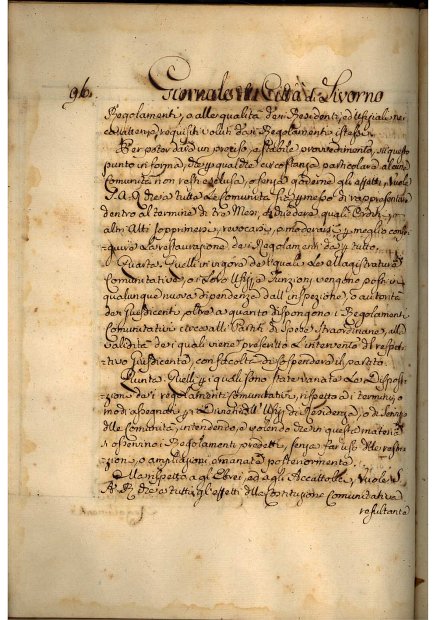 96. Giornale in Città di Livorno
Regolamenti, o alle qualità dei Residenti, ed Ufiziali nei
requisiti voluti dai Regolamenti istessi.
Per poter dare un preciso, e stabile provvedimento, su questo
punto in forma, che qualche circostanza particolare alcune
Comunità non resti esclusa, o senza goderne gli effetti, vuole
S. A. R. che a tutte le Comunità sia permesso di rappresentare
dentro al termine di tre Mesi, quali Ordini, o
altri Atti sopprimere, revocare, o moderare meglio
la restaurazione dei Regolamenti tutto.
Quarto. Quelli in vigore dei quali le Magistrature
Comunitative, o i loro Ufizj, e Funzioni vengono posti in
qualunque nuova dipendenza dall'inspezione, o autorità
dei Giusdicenti, oltre a quanto dispongono i Regolamenti
Comunitativi circa alli Partiti di Spese Straordinarie, alla
validità dei quali viene prescritto l'intervento del respet-
tivo Giusdicente, con facoltà di sospendere il partito.
Quinto. Quelli i quali sono state variate le Disposi-
zioni dei regolamenti comunitativi, rispetto ai termini, e
modi assegnati Divieti dell' Ufizj di Residenza, o di
delle Comunità, intendendo, e volendo che in questa materia
si osservino i Regolamenti predetti, senza far uso delle restri-
zioni, o ampliazioni emanate posteriormente.
Ma rispetto agli Ebrei, ed agli Accattolici, vuole S.
A. R. che a tutti gli effetti della Costituzione Comunitativa
resultante